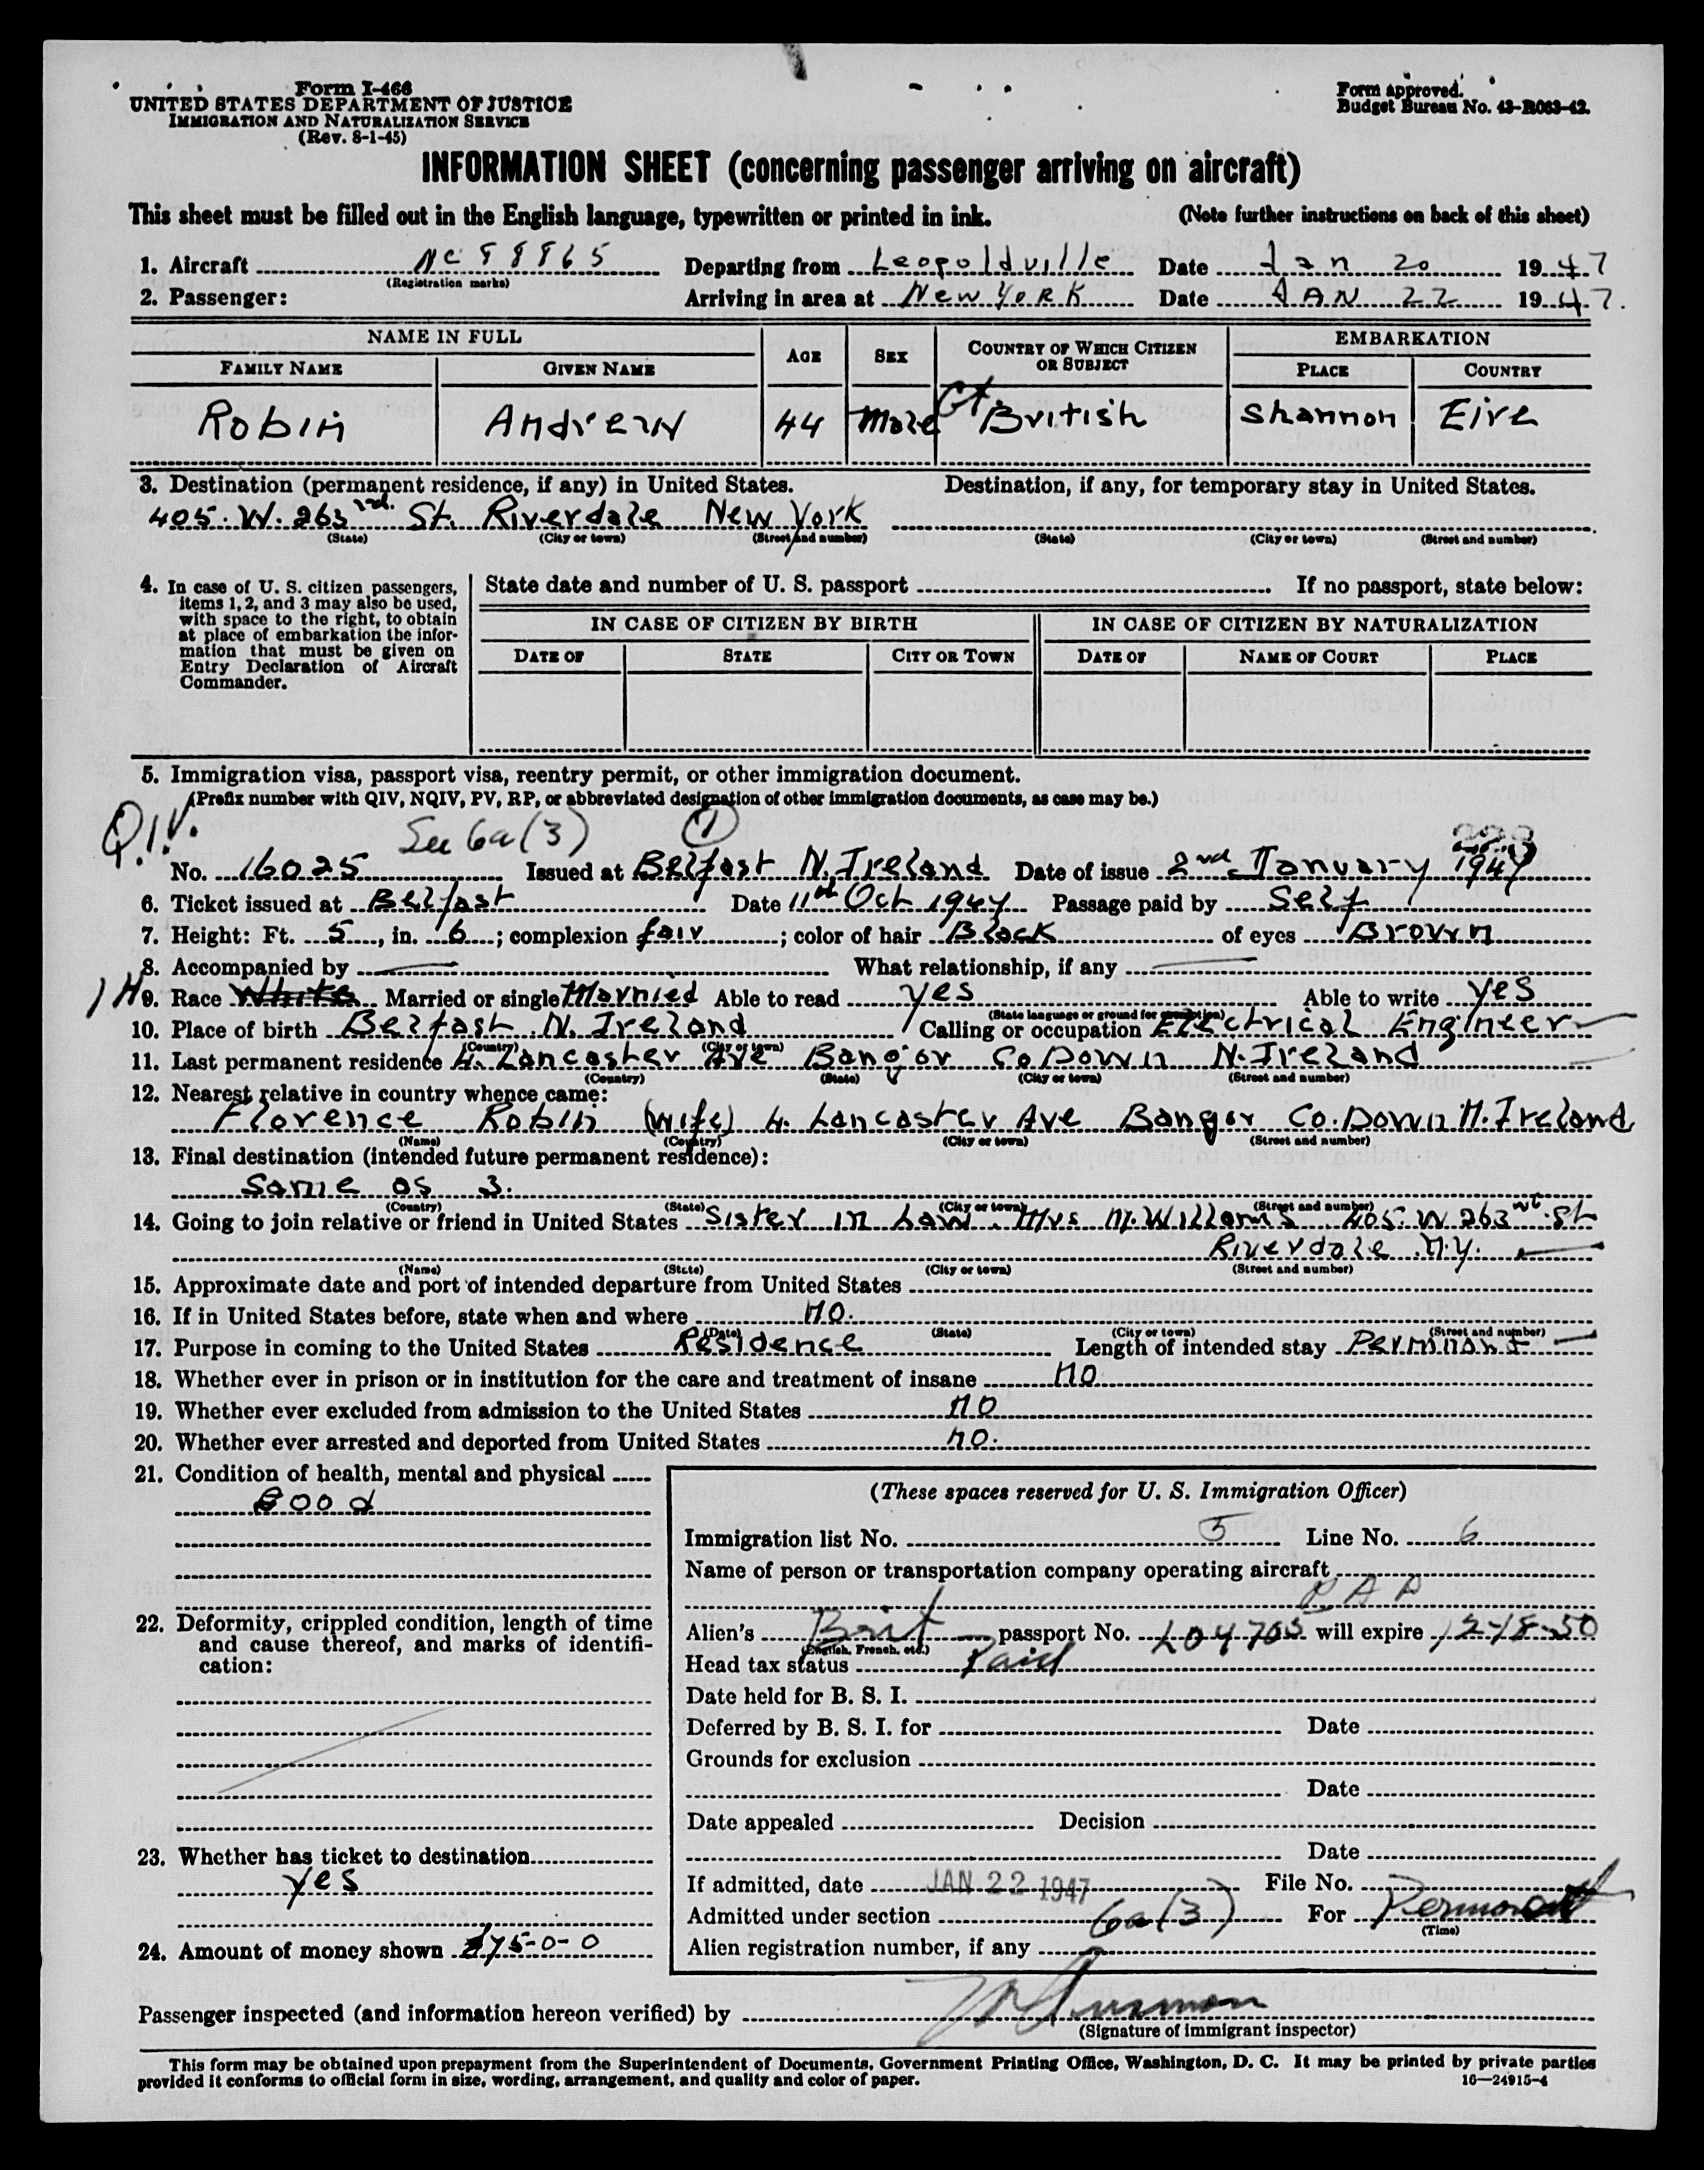 Form I-466
UNITED STATES DEPARTMENT OF JUSTICE
IMMIGRATION AND NATURALIZATION SERVICE
(Rev. 8-1-45)
Form approved.
Budget Bureau No. 43-R063-42.
INFORMATION SHEET (concerning passenger arriving on aircraft)
This sheet must be filled out in the English language, typewritten or printed in ink. (Note further instructions on back of this sheet)
1. Aircraft NC 88865 Departing from Leopoldville Date Jan 20 1947
(Registration marks)
2. Passenger: Arriving in area at New York Date JAN 22 1947.
NAME IN FULL AGE SEX COUNTRY OF WHICH CITIZEN OR SUBJECT EMBARKATION
FAMILY NAME GIVEN NAME PLACE COUNTRY
Robin Andrew 44 Male Gt. British Shannon Eire
3. Destination (permanent residence, if any) in United States. Destination, if any, for temporary stay in United States.
405. W. 263rd. St. Riverdale New York
(State) (City or town) (Street and number) (State) (City or town) (Street and number)
4. In case of U. S. citizen passengers, items 1, 2, and 3 may also be used, with space to the right, to obtain at place of embarkation the information that must be given on Entry Declaration of Aircraft Commander.
State date and number of U. S. passport If no passport, state below:
IN CASE OF CITIZEN BY BIRTH IN CASE OF CITIZEN BY NATURALIZATION
DATE OF STATE CITY OR TOWN DATE OF NAME OF COURT PLACE
5. Immigration visa, passport visa, reentry permit, or other immigration document.
(Prefix number with QIV, NQIV, PV, RP, or abbreviated designation of other immigration documents, as case may be.)
Q.I.V. See 6a(3) 1
No. 16025 Issued at Belfast N. Ireland Date of issue 2nd January 1947
6. Ticket issued at Belfast Date 11th Oct 1947 Passage paid by Self
7. Height: Ft. 5, in. 6; complexion fair; color of hair Black of eyes Brown
8. Accompanied by — What relationship, if any —
9. Race White Married or single Married Able to read yes Able to write yes
(State language or ground for exemption)
10. Place of birth Belfast N. Ireland Calling or occupation Electrical Engineer
(Country) (City or town)
11. Last permanent residence 4. Lancaster Ave Bangor Co Down N. Ireland
(Country) (State) (City or town) (Street and number)
12. Nearest relative in country whence came:
Florence Robin (wife) 4. Lancaster Ave Bangor Co. Down N. Ireland
(Name) (Country) (City or town) (Street and number)
13. Final destination (intended future permanent residence):
Same as 3.
(Country) (State) (City or town) (Street and number)
14. Going to join relative or friend in United States Sister in Law. Mrs M. Willams 405. W 263 St
Riverdale N.Y.
(Name) (State) (City or town) (Street and number)
15. Approximate date and port of intended departure from United States
16. If in United States before, state when and where NO.
(Date) (State) (City or town) (Street and number)
17. Purpose in coming to the United States Residence Length of intended stay Perminant
18. Whether ever in prison or in institution for the care and treatment of insane NO
19. Whether ever excluded from admission to the United States NO
20. Whether ever arrested and deported from United States NO.
21. Condition of health, mental and physical
Good
22. Deformity, crippled condition, length of time and cause thereof, and marks of identification:
23. Whether has ticket to destination
yes
24. Amount of money shown £75-0-0
(These spaces reserved for U. S. Immigration Officer)
Immigration list No. 5 Line No. 6
Name of person or transportation company operating aircraft
P A A
Alien's Brit passport No. L04705 will expire 12-18-50
(English, French, etc.)
Head tax status Paid
Date held for B. S. I.
Deferred by B. S. I. for Date
Grounds for exclusion
Date
Date appealed Decision
Date
If admitted, date JAN 22 1947 File No.
Admitted under section 6a(3) For Permanent
(Time)
Alien registration number, if any
Passenger inspected (and information hereon verified) by
(Signature of immigrant inspector)
This form may be obtained upon prepayment from the Superintendent of Documents, Government Printing Office, Washington, D. C. It may be printed by private parties
provided it conforms to official form in size, wording, arrangement, and quality and color of paper. 16—24915-4